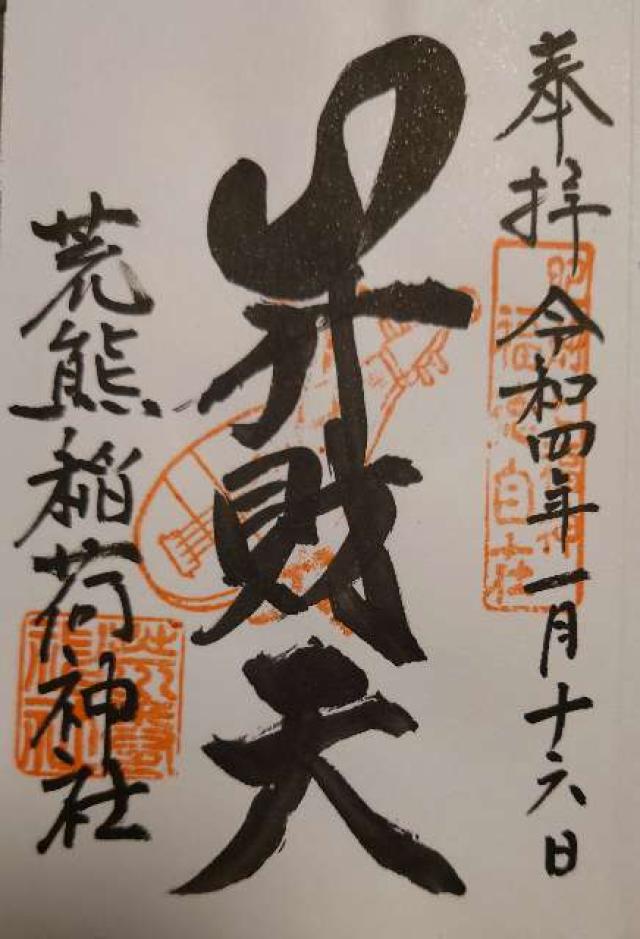 奉拝 令和四年一月十六日
弁財天
荒熊稲荷神社